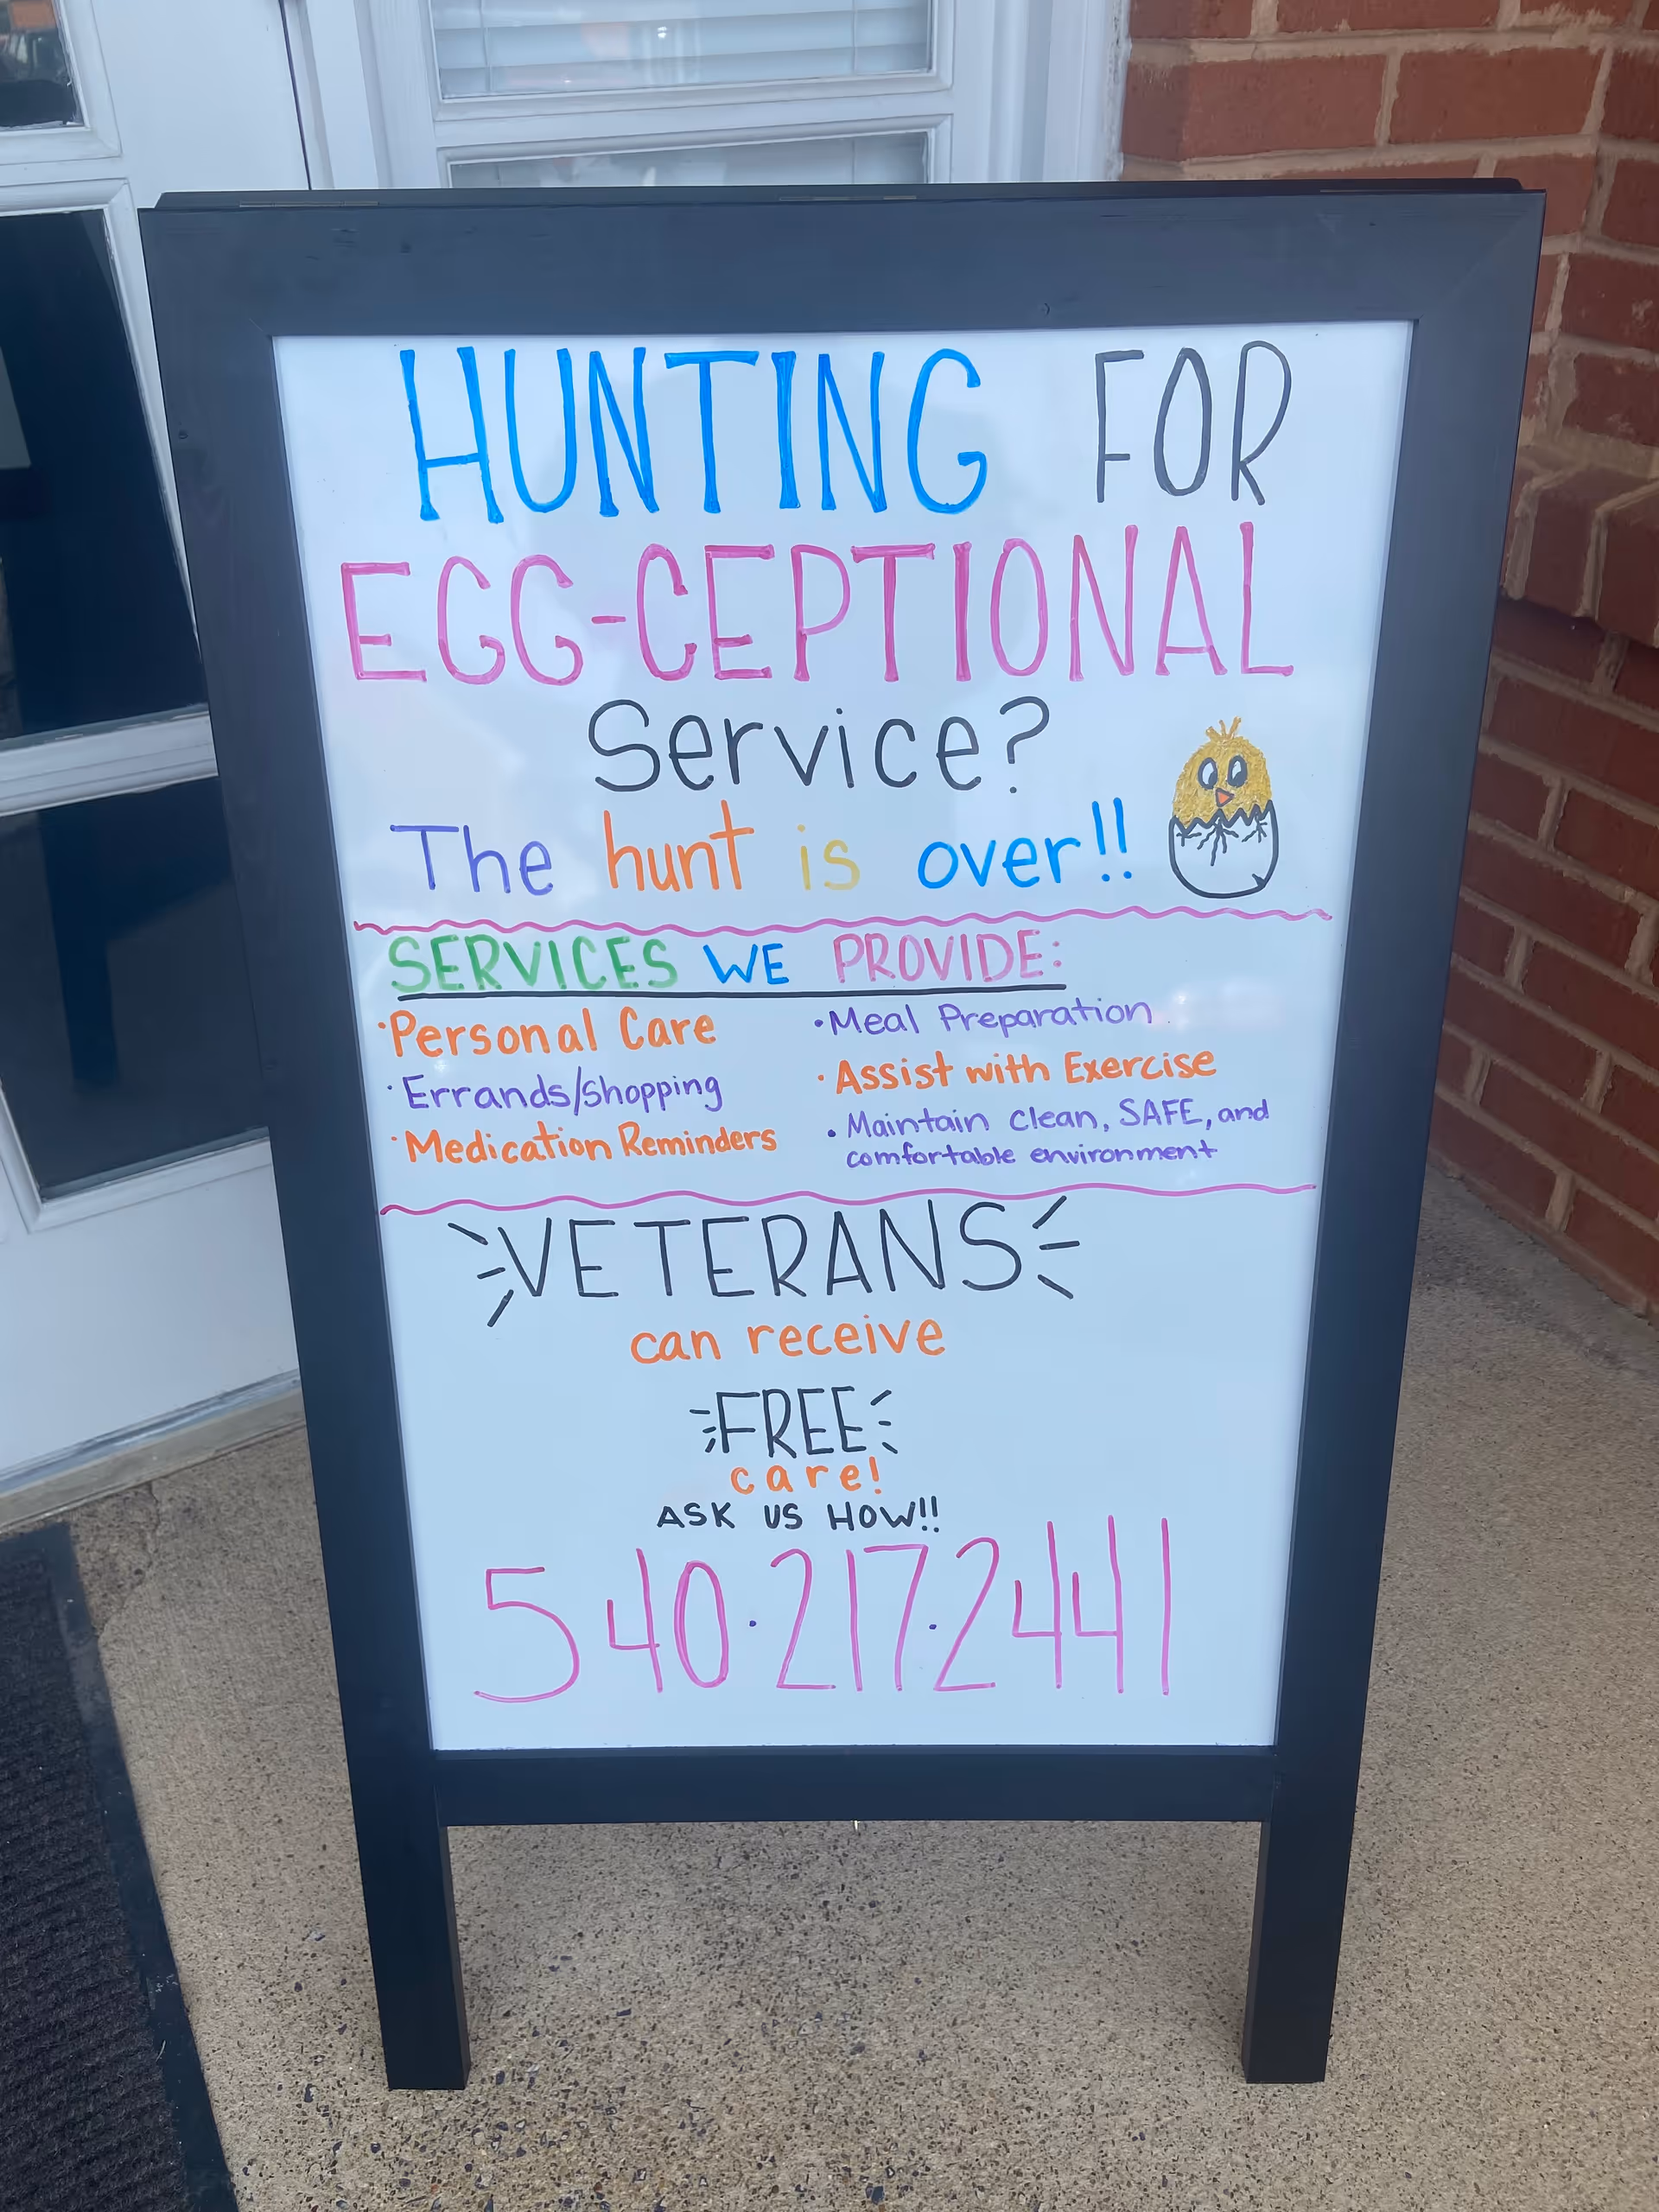 HUNTING FOR
EGG-CEPTIONAL
Service?
The hunt is over!!
SERVICES WE PROVIDE:
·Personal Care
·Errands/Shopping
·Medication Reminders
·Meal Preparation
·Assist with Exercise
·Maintain clean, SAFE, and
comfortable environment
VETERANS
can receive
FREE
care!
ASK US HOW!!
540·217·2441